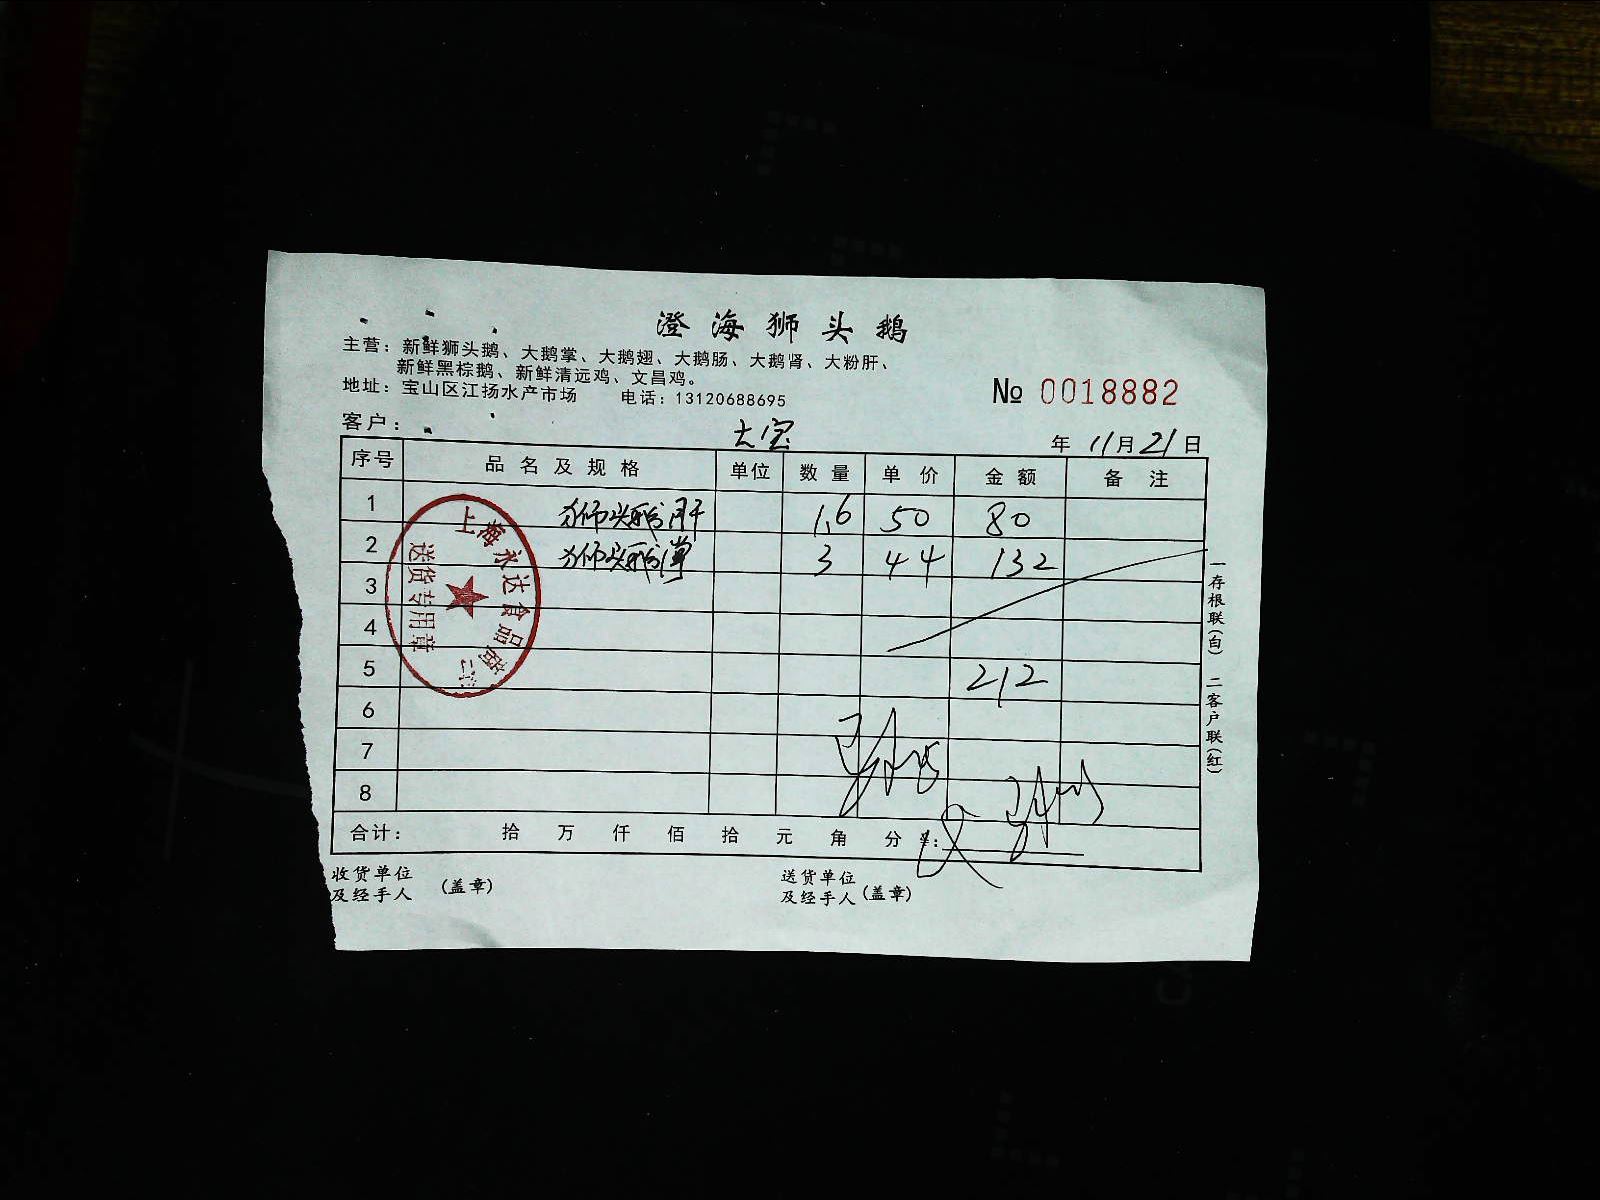 澄海狮头鹅
主营：新鲜狮头鹅、大鹅掌、大鹅翅、大鹅肠、大鹅肾、大粉肝、
新鲜黑棕鹅、新鲜清远鸡、文昌鸡。
地址：宝山区江扬水产市场 电话：13120688695
№ 0018882
客户： 大宝 年 11月21日
序号 品名及规格 单位 数量 单价 金额 备注
1 狮头鹅肝 1.6 50 80
2 狮头鹅掌 3 44 132
3
4
5 212
6
7
8
合计： 拾 万 仟 佰 拾 元 角 分 ¥:
收货单位
及经手人 (盖章)
送货单位
及经手人 (盖章)
一存根联(白) 二客户联(红)
上海永达食品商行
送货专用章